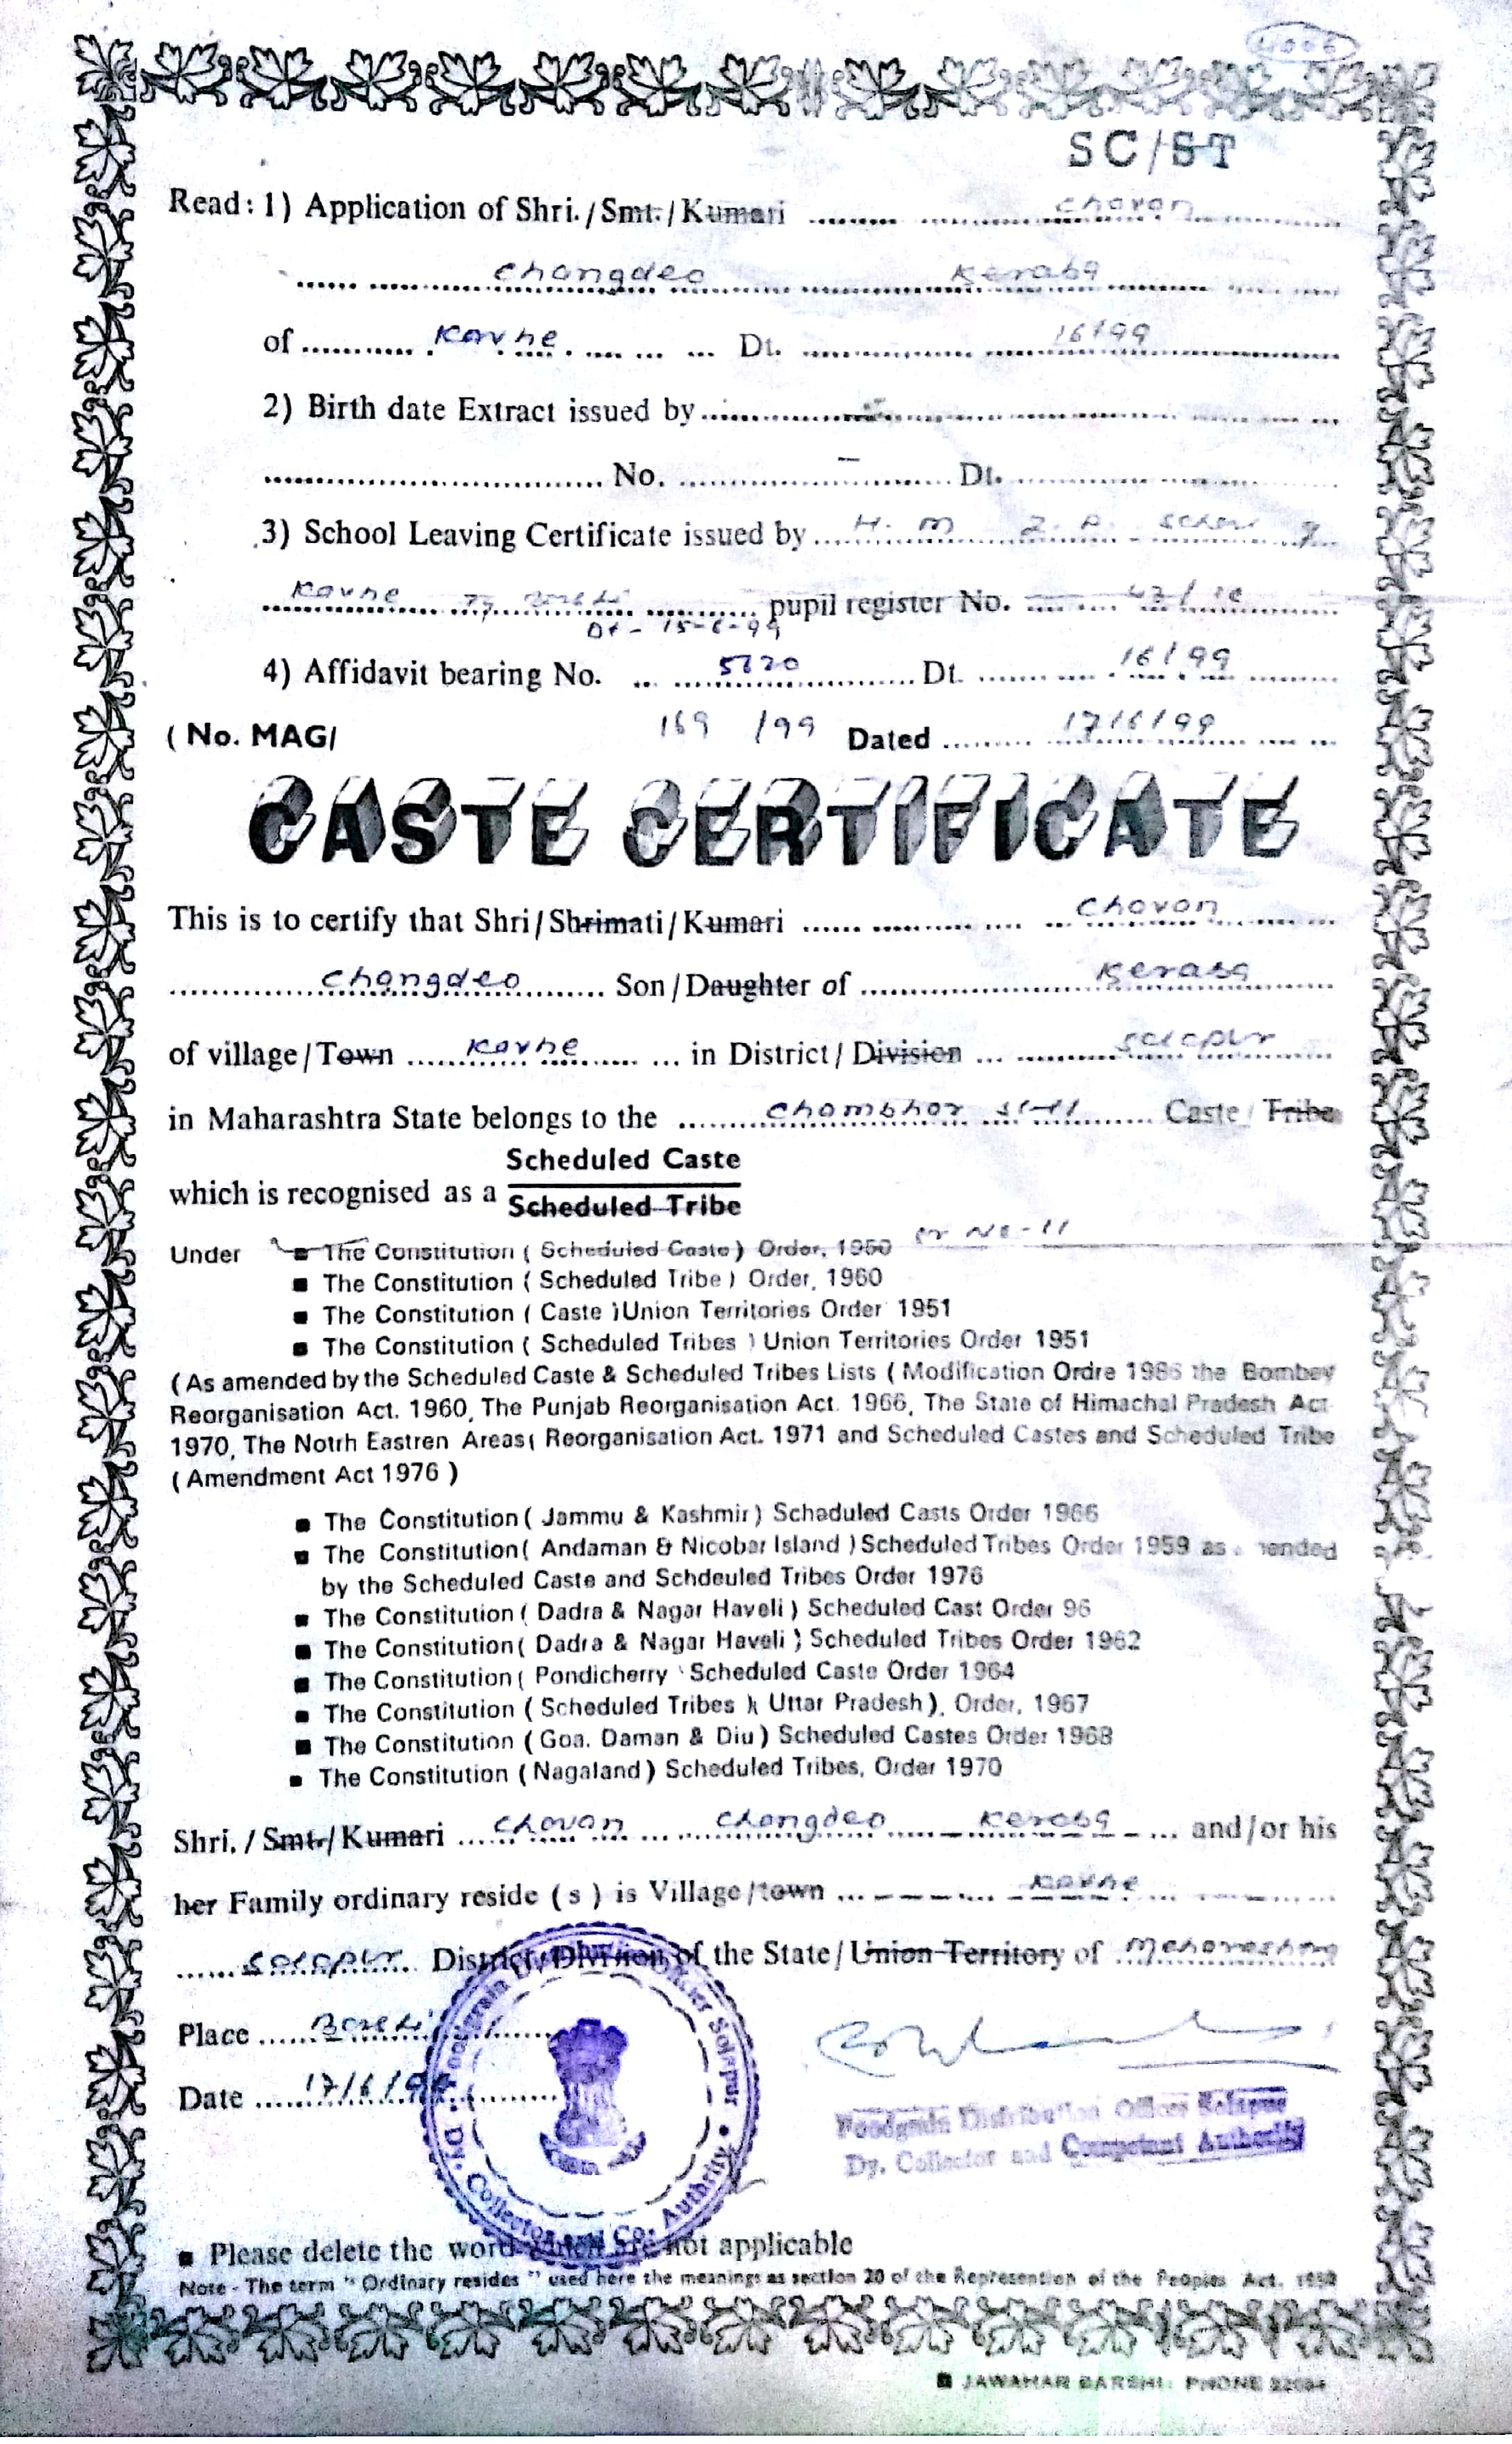 4006
SC/ST
Read: 1) Application of Shri./Smt./Kumari ........ chavan
Changdeo Keraba
of ........ Kavhe ........ Dt. ........ 16/99
2) Birth date Extract issued by ........
........ No. ........ – ........ Dt. ........
3) School Leaving Certificate issued by ........ H. M Z. P.
Kavhe ........ pupil register No. ........
Dt - 15-6-99
4) Affidavit bearing No. ........ Dt. ........ 16/99
( No. MAG/ 169 /99 Dated ........ 17/6/99
CASTE CERTIFICATE
This is to certify that Shri/Shrimati/Kumari ........ Chavan
Changdeo ........ Son/Daughter of ........ Keraba
of village/Town ........ Kavhe ........ in District/Division ........ Solapur
in Maharashtra State belongs to the ........ Chambhar ........ Caste/Tribe
Scheduled Caste
which is recognised as a
Scheduled Tribe
Under ■ The Constitution ( Scheduled Caste) Order, 1950 No-11
■ The Constitution ( Scheduled Tribe ) Order, 1960
■ The Constitution ( Caste )Union Territories Order 1951
■ The Constitution ( Scheduled Tribes ) Union Territories Order 1951
( As amended by the Scheduled Caste & Scheduled Tribes Lists ( Modification Ordre 1956 the Bombey
Reorganisation Act. 1960, The Punjab Reorganisation Act. 1966, The State of Himachal Pradesh Act
1970, The Notrh Eastren Areas( Reorganisation Act. 1971 and Scheduled Castes and Scheduled Tribe
( Amendment Act 1976 )
■ The Constitution ( Jammu & Kashmir) Schaduled Casts Order 1966
■ The Constitution( Andaman & Nicobar Island ) Scheduled Tribes Order 1959 as amended
by the Scheduled Caste and Schdeuled Tribes Order 1976
■ The Constitution ( Dadra & Nagar Haveli ) Scheduled Cast Order 96
■ The Constitution( Dadra & Nagar Haveli ) Scheduled Tribes Order 1962
■ The Constitution ( Pondicherry Scheduled Caste Order 1964
■ The Constitution ( Scheduled Tribes )( Uttar Pradesh ), Order, 1967
■ The Constitution ( Goa. Daman & Diu ) Scheduled Castes Order 1968
■ The Constitution ( Nagaland ) Scheduled Tribes, Order 1970
Shri. / Smt./Kumari ........ Chavan Changdeo Keraba ........ and/or his
her Family ordinary reside ( s ) is Village/town ........ Kavhe ........
Solapur District/Division of the State/Union Territory of Maharashtra
Place ........ Barshi
Date ........ 17/6/99
Foodgrain Distribution Officer Solapur
Dy. Collector and Competent Authority
Foodgrain Distribution Officer Solapur • Dy. Collector and Co. Authrity
■ Please delete the word which are not applicable
Note - The term " Ordinary resides " used here the meanings as section 20 of the Represention of the Peoples Act. 1950
■ JAWAHAR BARSHI. PHONE